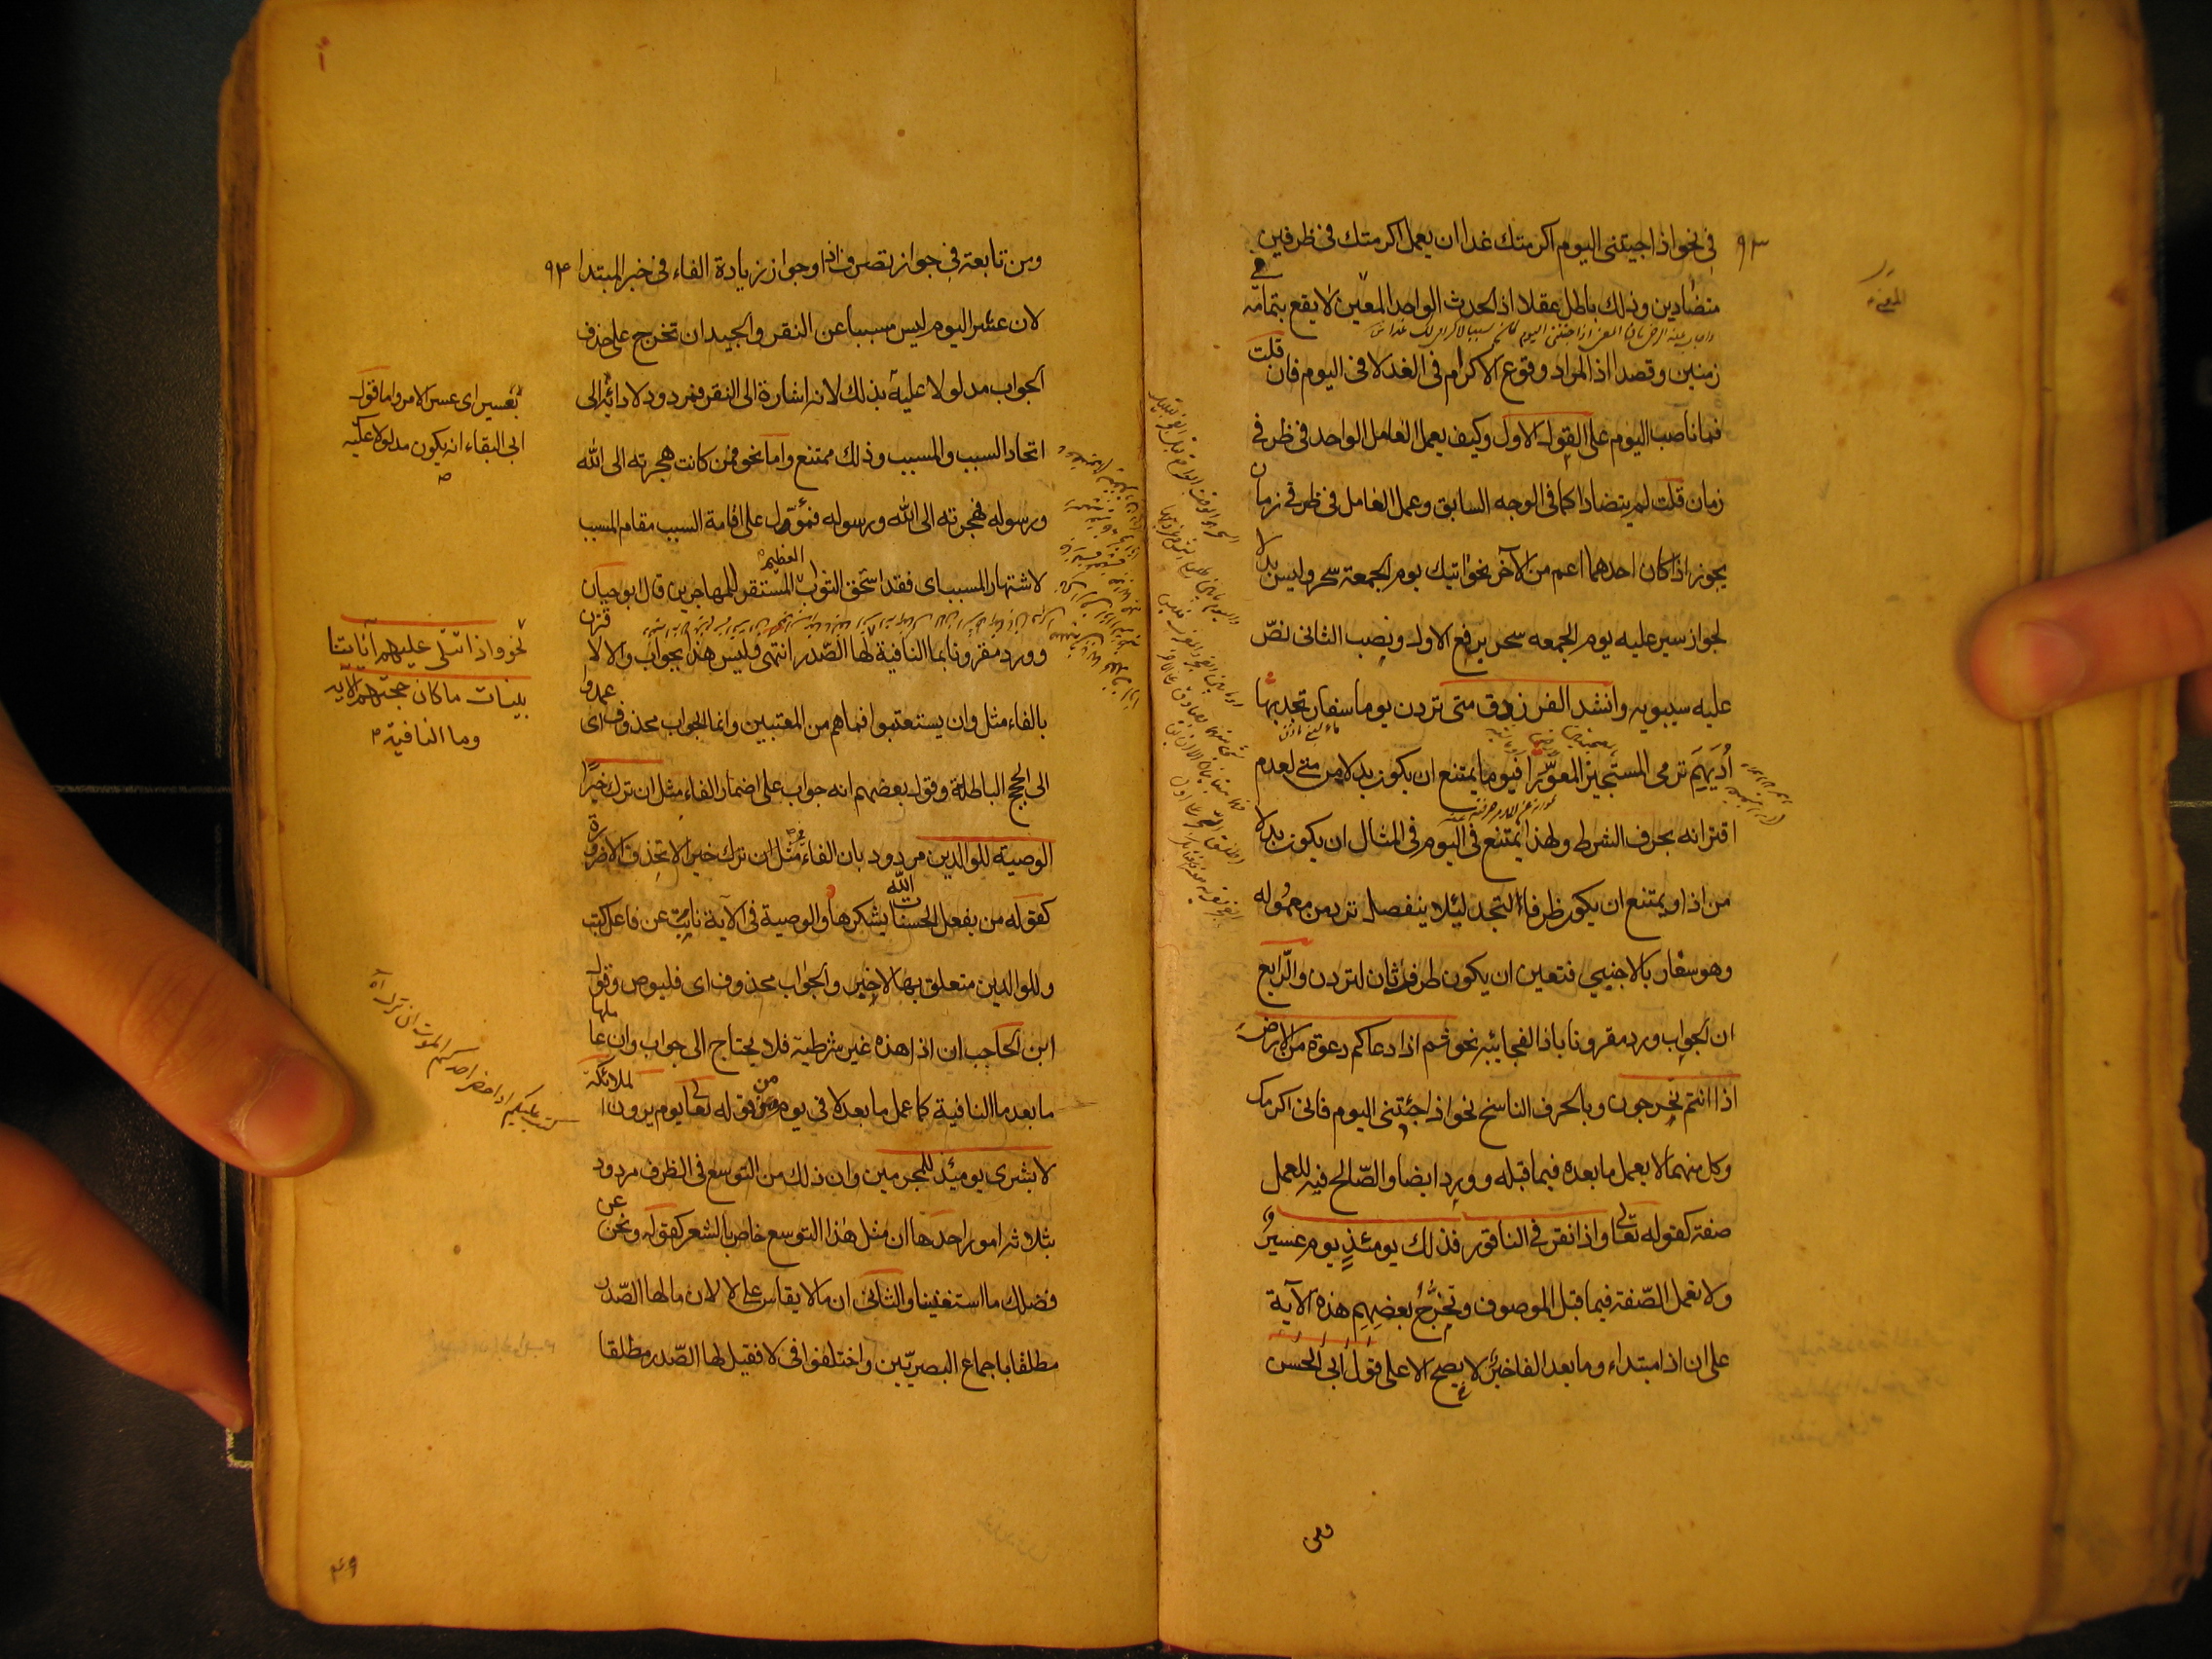 ٩٣
فى نحو اذا جيتنى اليوم اكرمتك غدا ان يعمل اكرمتك فى ظرفين
متضادين وذلك باطل عقلا اذ الحدث الواحد المعين لا يقع بتمامه فى
زمنين وقصدا اذ المراد وقوع الاكرام فى الغد لا فى اليوم فان قلت
فما ناصب اليوم على القول الاول وكيف يعمل العامل الواحد فى ظرفى
زمان قلت لم يتضادا كما فى الوجه السابق وعمل العامل فى ظرفى زمان
يجوز اذا كان احدهما اعم من الآخر نحو اتيك يوم الجمعة سحر وليس بدلا
لجواز سير عليه يوم الجمعه سحر برفع الاول ونصب الثانى نصّ
عليه سيبويه وانشد الفرزدق متى تردن يوما سفار تجد بها
أُدَيْهِم ترمى المستجيز المعوّرا فيوما يمتنع ان يكون بدلا من متى لعدم
اقترانه بحرف الشرط ولهذا يمتنع فى اليوم فى المثال ان يكون بدلا
من اذا ويمتنع ان يكون ظرفا لتجد ليئلا ينفصل تردمن معموله
وهو سفار بالاجنبى فتعين ان يكون ظرفا ثان لتردن والرّابع
ان الجواب ورد مقرونا باذا الفجائيه نحو ثم اذا دعاكم دعوة من الارض
اذا انتم تخرجون وبالحرف الناسخ نحو اذا جئتنى اليوم فانى اكرمك
وكل منهما لا يعمل ما بعده فيما قبله وورد ايضا والصّالح فيه للعمل
صفة كقوله تعالى واذا نقر فى الناقور فذلك يومئذٍ يوم عسيرٌ
ولا تعمل الصّفة فيما قبل الموصوف وتخرّج بعضهم هذه الآية
على ان اذا مبتداء وما بعد الفا خبر لا يصح الا على قول ابى الحسن
ومن تابعه فى جواز تصرف اذا وجواز زيادة الفاء فى خبر المبتدا ٩٤
لان عسر اليوم ليس مسببا عن النقر والجيد ان تخرج على حذف
الجواب مدلولا عليه بذلك لانه اشارة الى النقر فمردود لادائه الى
اتحاد السبب والمسبب وذلك ممتنع واما نحو فمن كانت هجرته الى الله
ورسوله فهجرته الى الله ورسوله فمؤوّل على اقامة السبب مقام المسبب
لاشتهار المسبب اى فقد استحق الثواب العظيم المستقر للمهاجرين قال ابو حيان
وورد مقرونا بما النافية لها الصّدر انتهى وليس هذا بجواب والا لاقترن
بالفاء مثل وان يستعتبوا فما هم من المعتبين وانما الجواب محذوف اى عمدوا
الى الحجج الباطلة وقول بعضهم انه جواب على اضمار الفاء مثل ان ترك خيرًا
الوصية للوالدين مردود بان الفاء مثل ان ترك خيرا لا تحذف الا ضرورة
كقوله من يفعل الحسنات الله يشكرها والوصية فى الآية نايب عن فاعل كتب
وللوالدين متعلق بها لا خبر والجواب محذوف اى فليوص وقول
ابن الحاجب ان اذا هذه غير شرطية فلا يحتاج الى جواب وان عاملها
ما بعد ما النافية كما عمل ما بعد لا فى يوم من قوله تعالى يوم يرون الملائكة
لا بشرى يومئذ للمجرمين وان ذلك من التوسع فى الظرف مردود
بثلاثة امور احدها ان مثل هذا التوسع خاص بالشعر كقوله ونحن عن
فضلك ما استغنينا والثانى ان ما لا يقاس على لا لان ما لها الصّدر
مطلقا باجماع البصريّين واختلفوا فى لا فقيل لها الصّدر مطلقا
بعسير اى عسر الامر واما قول
ابى البقاء انه يكون مدلولا عليه
نحو واذا تتلى عليهم آياتنا
بينات ما كان حجتهم الآية
وما النافية
كتب عليكم اذا حضر احدكم الموت ان ترك
٤٩